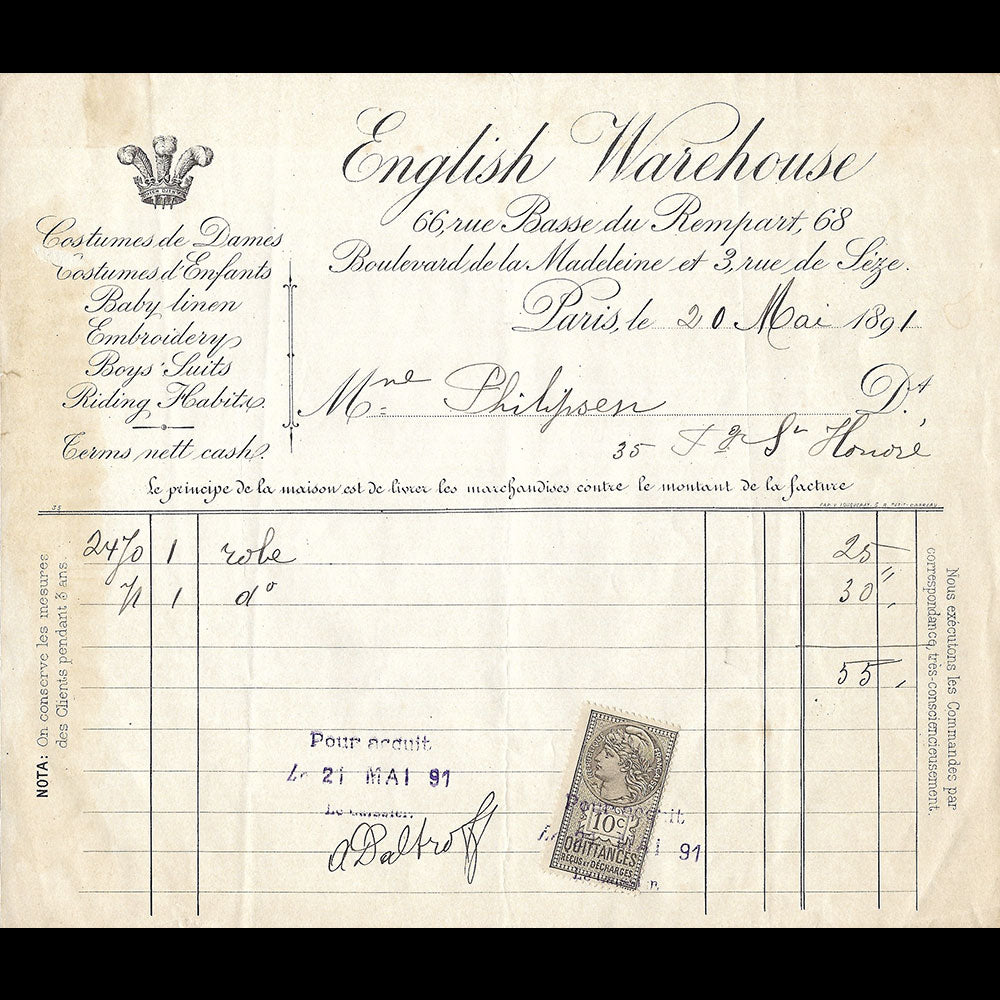 English Warehouse
66, rue Basse du Rempart, 68
Boulevard de la Madeleine et 3, rue de Sèze.
Costumes de Dames
Costumes d'Enfants
Baby linen
Embroidery
Boys' Suits
Riding Habits.
Terms nett cash.
Paris, le 20 Mai 1891
Mme Philipsen Dt
35 Fg St Honoré
Le principe de la maison est de livrer les marchandises contre le montant de la facture
35
NOTA: On conserve les mesures
des Clients pendant 3 ans.
2470 1 robe 25
71 1 do 30 "
55
Nous exécutons les Commandes par
correspondance, très-consciencieusement.
Pour acquit
Le 21 MAI 91
Le Caissier.
ADaltroff
10c
QUITTANCES
REÇUS ET DÉCHARGES
Pour acquit
MAI 91